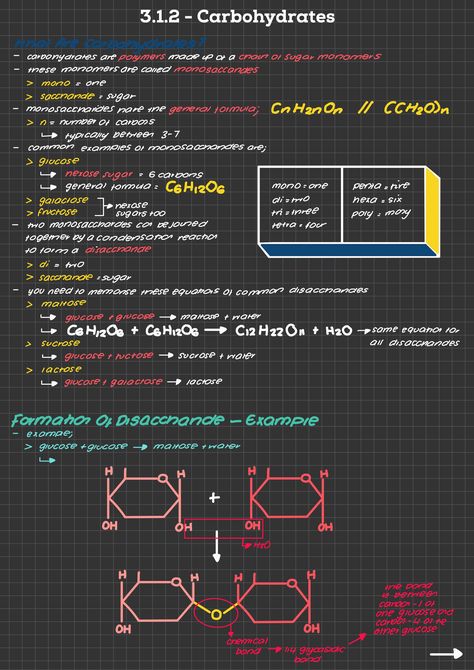 3.1.2 - Carbohydrates
What Are Carbohydrates?
- carbohydrates are polymers made up of a chain of sugar monomers
- these monomers are called monosaccarides
> mono = one
> saccharide = sugar
- monosaccharides have the general formula; CnH2nOn // C(H2O)n
> n = number of carbons
↳ typically between 3-7
- common examples of monosaccharides are;
> glucose
↳ hexose sugar = 6 carbons
↳ general formula = C6H12O6
> galactose
> fructose
↳ hexose
sugars too
mono = one
di = two
tri = three
tetra = four
penta = five
hexa = six
poly = many
- two monosaccharides can be joined
together by a condensation reaction
to form a disaccharide
> di = two
> saccharide = sugar
- you need to memorise these equations of common disaccharides
> maltose
↳ glucose + glucose → maltose + water
↳ C6H12O6 + C6H12O6 → C12H22O11 + H2O → same equation for
all disaccharides
> sucrose
↳ glucose + fructose → sucrose + water
> lactose
↳ glucose + galactose → lactose
Formation Of Disaccharide – Example
- example;
> glucose + glucose → maltose + water
↳
H O H + H O H
OH OH OH OH
→ H2O
H O H H O H
OH O OH
chemical
bond → 1,4 glycosidic
bond
the bond
is between
carbon-1 of
one glucose and
carbon-4 of the
other glucose